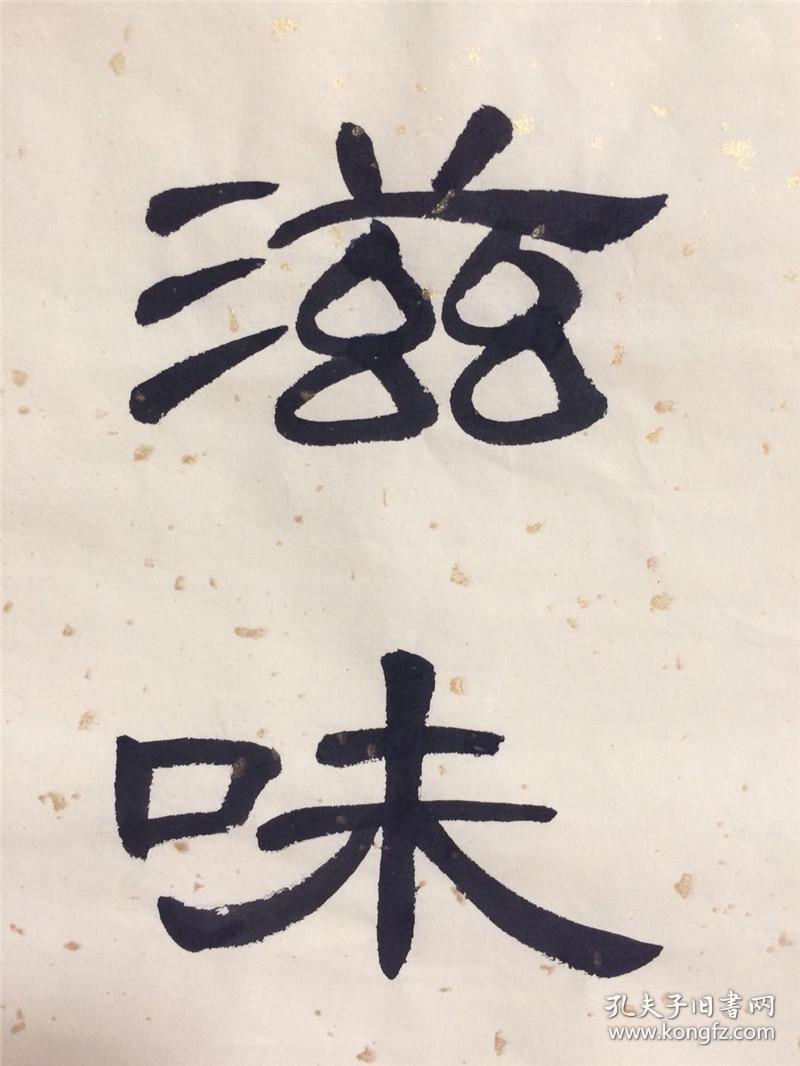 滋
味
孔夫子旧書网
www.kongfz.com